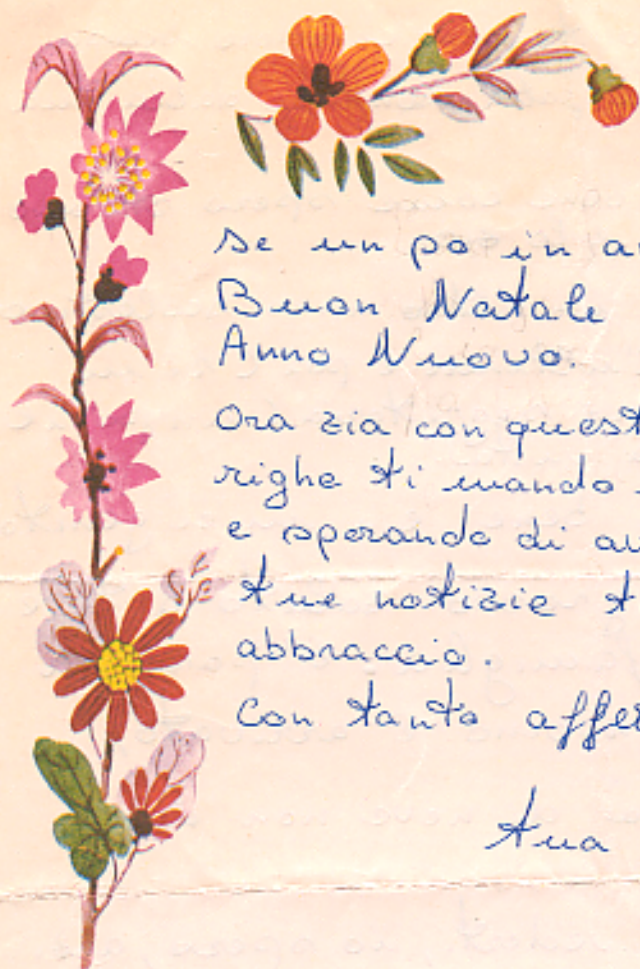 se un po in a
Buon Natale
Anno Nuovo.
Ora zia con quest
righe ti mando
e sperando di av
tue notizie t
abbraccio.
Con tanto affe
tua